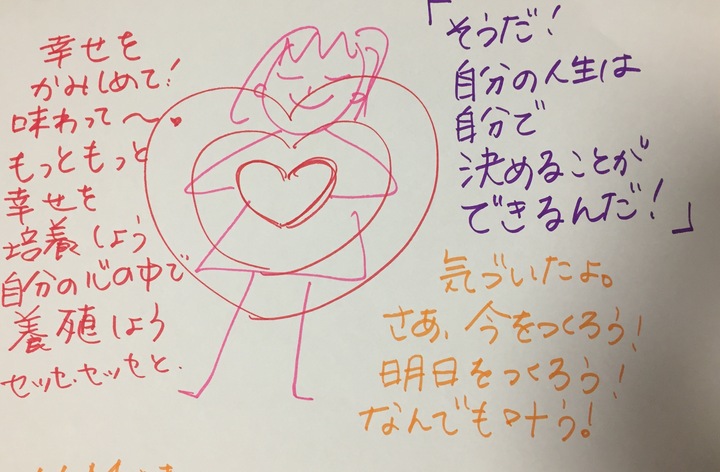 幸せを
かみしめて!
味わって〜♥
もっともっと
幸せを
培養しよう
自分の心の中で
養殖しよう
セッセ、セッセと.
「そうだ!
自分の人生は
自分で
決めることが
できるんだ!」
気づいたよ。
さあ、今をつくろう!
明日をつくろう!
なんでも叶う!